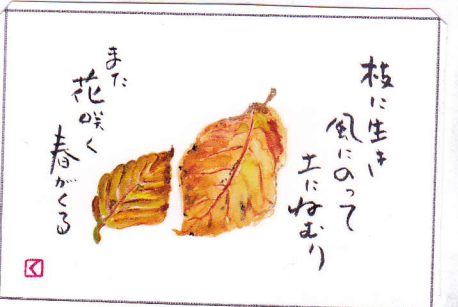 枝に生き
風にのって
土にねむり
また
花咲く
春がくる
く